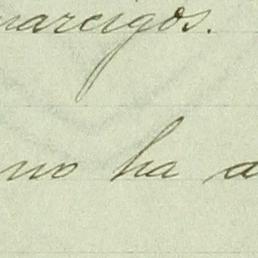 marcigos.
no ha a